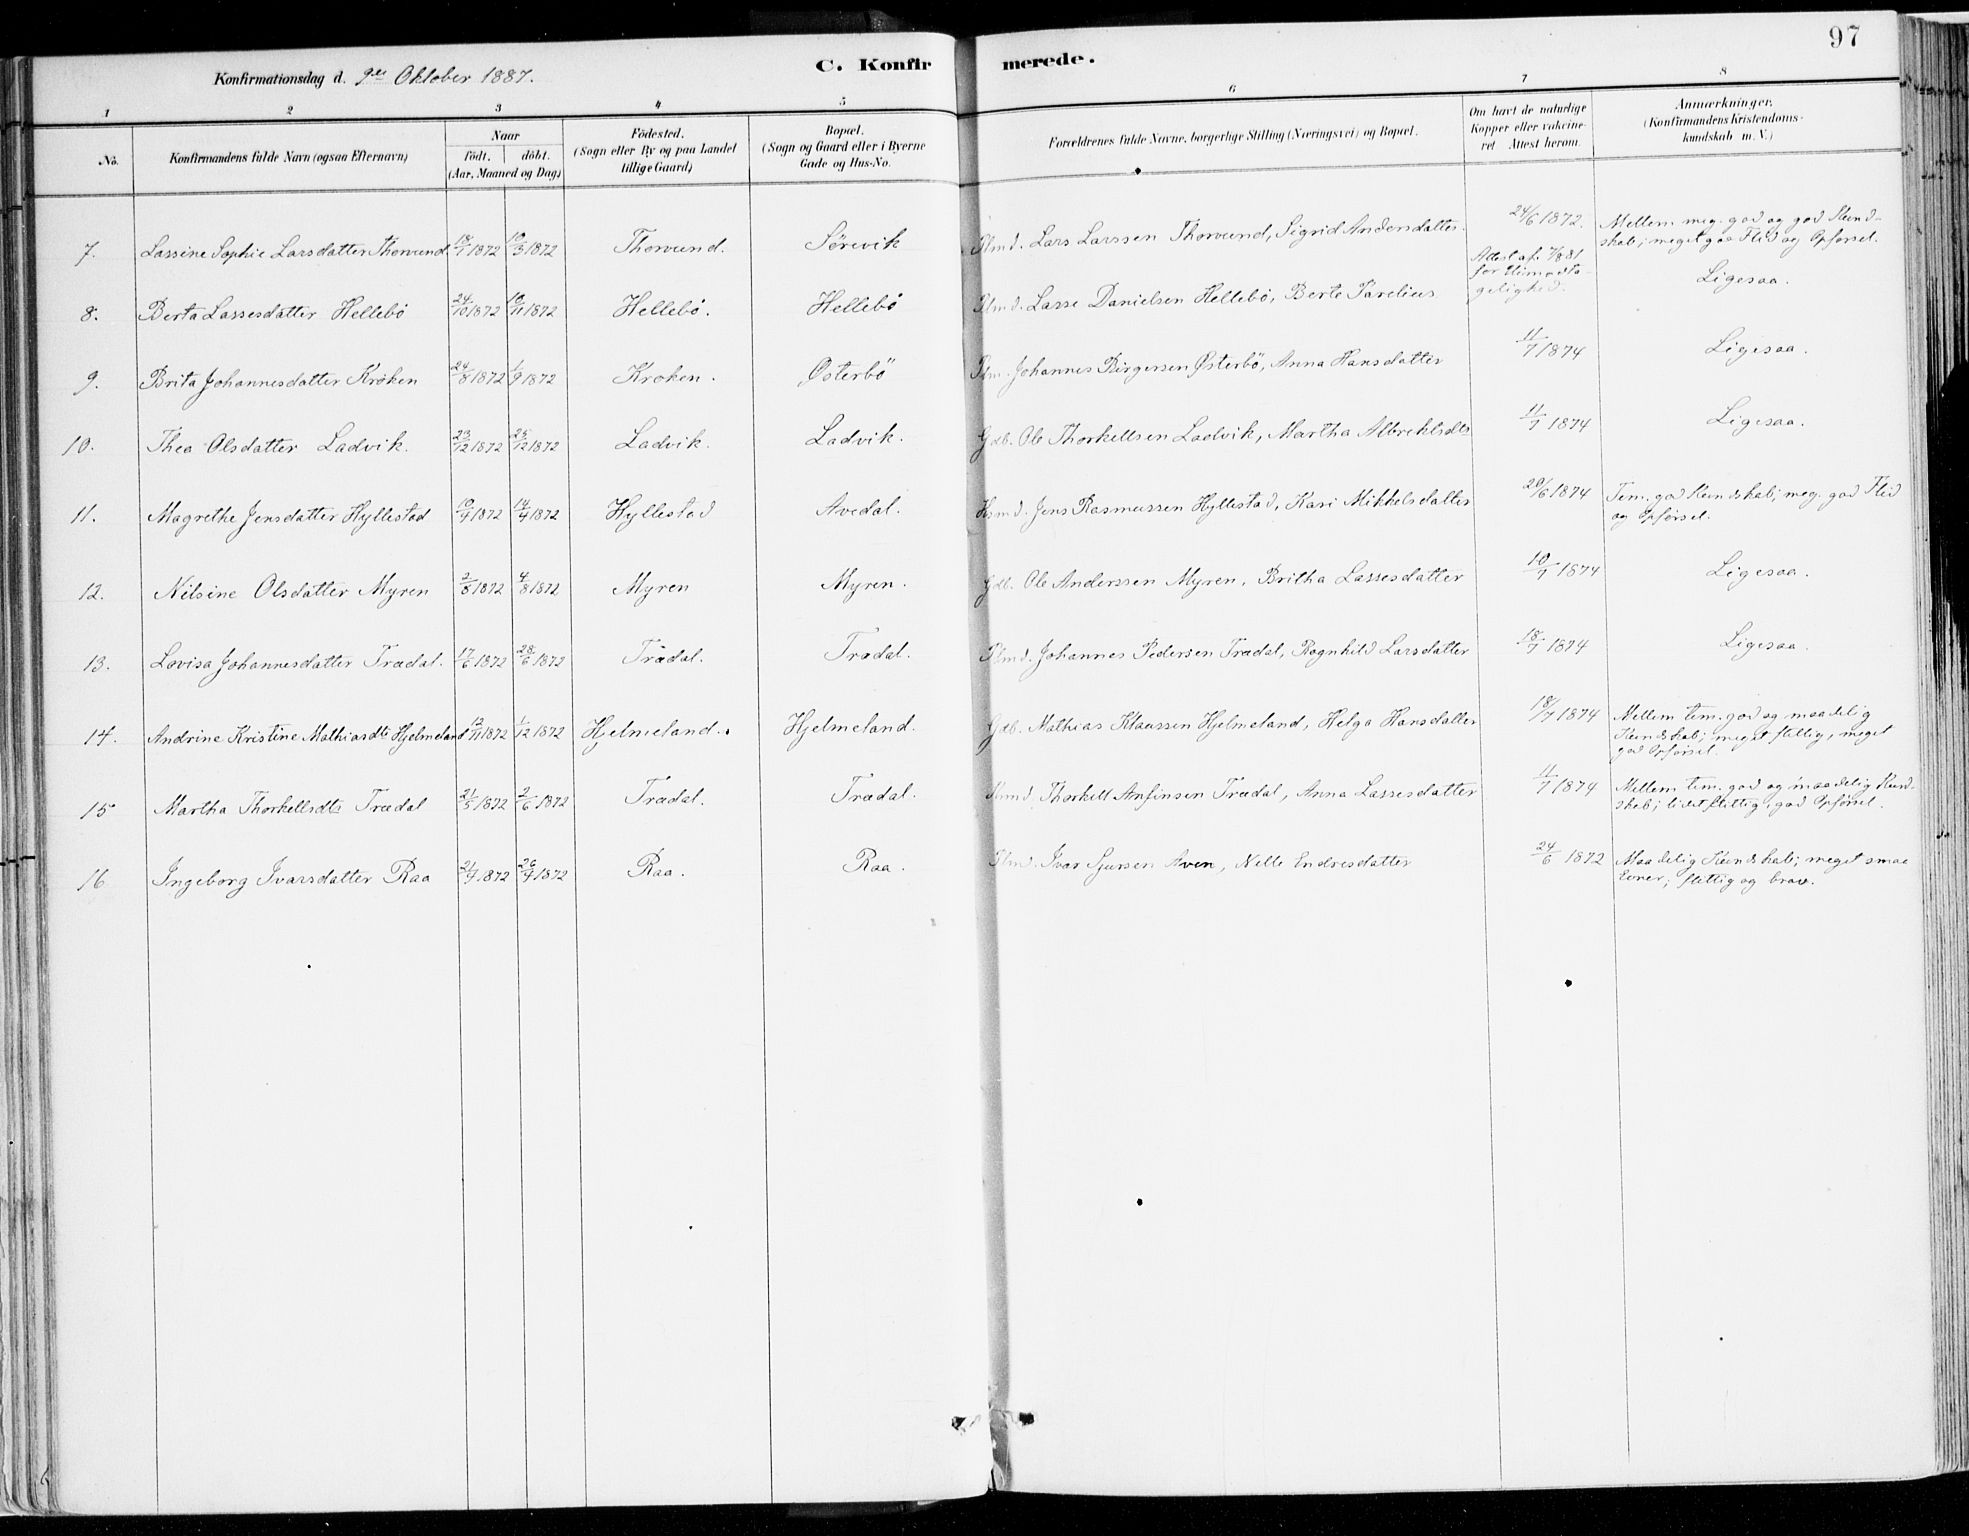 97
Konfirmationsdag d. 9de Oktober 1887.
C. Konfirmerede.
1 2 3 4 5 6 7 8
No.
Konfirmandens fulde Navn (ogsaa Efternavn)
Naar
födt. döbt.
(Aar, Maaned og Dag)
Födested.
(Sogn eller By og paa Landet
tillige Gaard)
Bopæl.
(Sogn og Gaard eller i Byerne
Gade og Hus-No.
Forældrenes fulde Navne, borgerlige Stilling (Næringsvei) og Bopæl.
Om havt de naturlige
Kopper eller vakcine-
ret Attest herom.
Anmærkninger,
(Konfirmandens Kristendoms-
kundskab m. V.)
7. Lassine Sophie Larsdatter Thorvund 18/1 1872 10/3 1872 Thorvund. Sørevik Plmd. Lars Larssen Thorvund, Sigrid Andersdatter 24/6 1872. Mellem meg. god og god Kund-
skab; meget god Flid og Opførsel.
8. Berta Lassesdatter Hellebö 24/10 1872 10/11 1872 Hellebö. Hellebö Plmd. Lasse Danielsen Hellebö, Berte Parelius Attest af 7/8 81
for Uimodta-
gelighed. Ligesaa.
9. Brita Johannesdatter Kroken 24/8 1872 1/9 1872 Kroken. Østerbö Plm. Johannes Birgersen Østerbö, Anna Hansdatter 11/7 1874 Ligesaa.
10. Thea Olsdatter Ladvik. 23/12 1872 25/12 1872 Ladvik. Ladvik. Gdb. Ole Thorkellsen Ladvik, Martha Albrektsdtr 11/7 1874 Ligesaa.
11. Magrethe Jensdatter Hyllestad 10/4 1872 14/4 1872 Hyllestad Avedal. Hsmd. Jens Rasmussen Hyllestad, Kari Mikkelsdatter 20/6 1874 Tem. god Kundskab; meg. god Flid
og Opførsel.
12. Nilsine Olsdatter Myren 2/8 1872 4/8 1872 Myren Myren. Gdb. Ole Anderssen Myren, Britha Lassesdatter 10/7 1874 Ligesaa.
13. Lovisa Johannesdatter Trædal. 17/6 1872 28/6 1872 Trædal. Trædal. Plmd. Johannes Pedersen Trædal, Ragnhild Larsdatter 18/7 1874 Ligesaa.
14. Andrine Kristine Mathiasdtr Hjelmeland 12/11 1872 1/12 1872 Hjelmeland. Hjelmeland. Gdb. Mathias Klaussen Hjelmeland, Helga Hansdatter 18/7 1874 Mellem tem. god og maadelig
Kundskab; meget flittig, meget
god Opførsel.
15 Martha Thorkellsdtr Trædal 21/5 1872 2/6 1872 Trædal. Trædal. Thorkell Anfinsen Trædal, Anna Lassesdatter 11/7 1874 Mellem tem. god og maadelig Kund-
skab; lidet flittig, god Opførsel.
16. Ingeborg Ivarsdatter Raa 21/7 1872 26/7 1872 Raa. Raa. Plmd. Ivar Sjursen Aven, Nelle Endresdatter 24/6 1872 Maadelig Kundskab; meget smaa
Evner; flittig og brav.